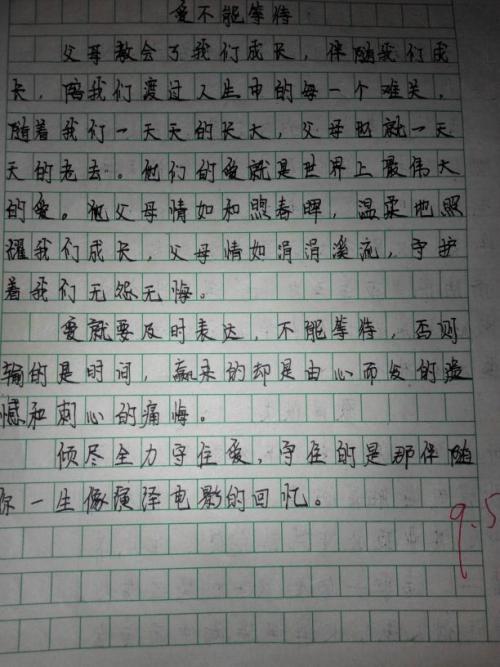 爱不能等待
父母教会了我们成长，伴随我们成
长，陪我们渡过人生中的每一个难关，
随着我们一天天的长大，父母也就一天
天的老去。他们的爱就是世界上最伟大
的爱。他父母情如和煦春晖，温柔地照
耀我们成长，父母情如涓涓溪流，守护
着我们无怨无悔。
爱就要及时表达，不能等待，否则
输的是时间，赢来的却是由心而发的遗
憾和刺心的痛悔。
倾尽全力守住爱，守住的是那伴随
你一生像演泽电影的回忆。
9.5